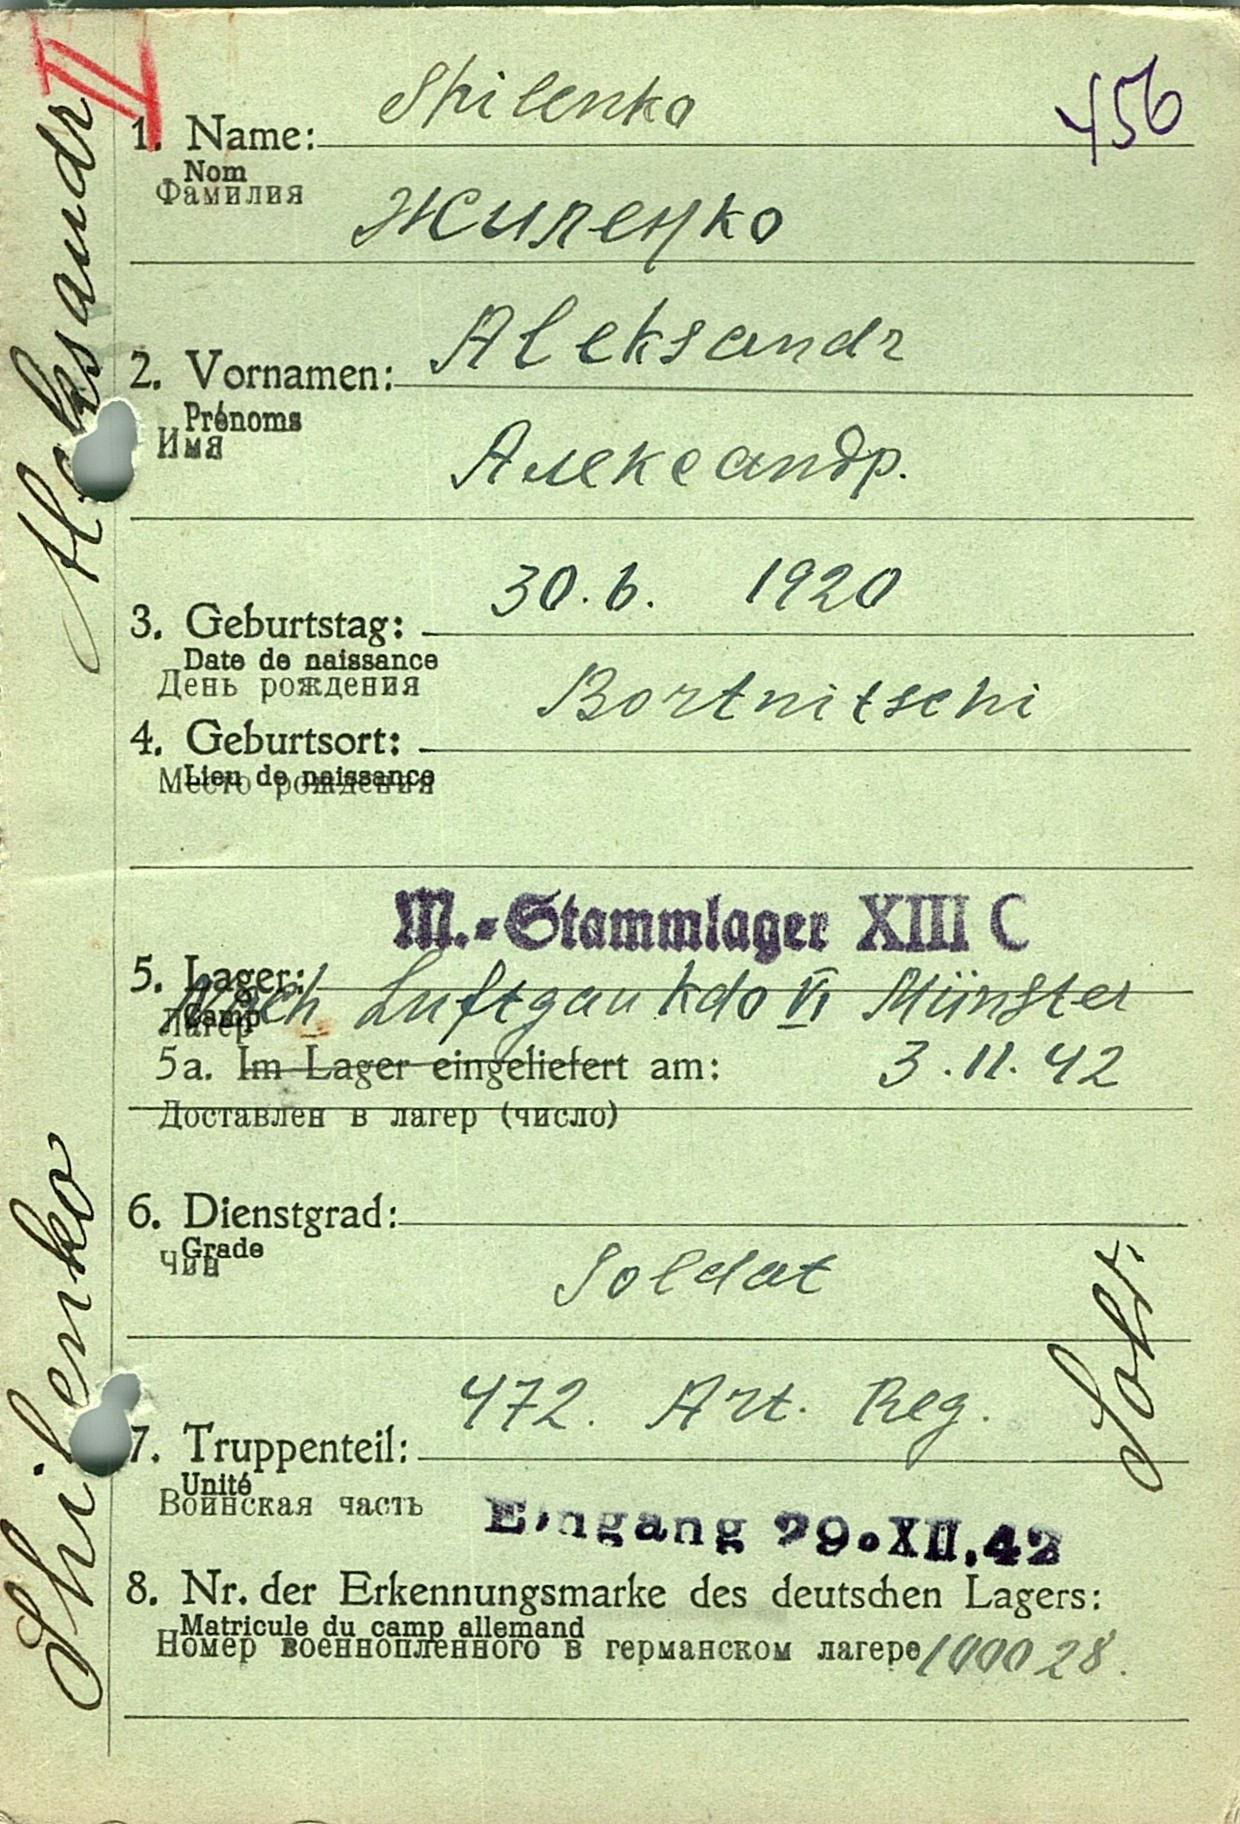 II
456
1. Name: Shilenko
Nom
Фамилия
Жиленко
2. Vornamen: Aleksandr
Prénoms
Имя
Александр.
3. Geburtstag: 30.6. 1920
Date de naissance
День рождения
4. Geburtsort: Bortnitschi
Lieu de naissance
Место рождения
M.-Stammlager XIII C
5. Lager:
Camp
Лагерь
Nach Luftgaukdo VI Münster
5a. Im Lager eingeliefert am: 3.11.42
Доставлен в лагер (число)
6. Dienstgrad:
Grade
Чин
Soldat
7. Truppenteil: 472. Art. Reg.
Unité
Воинская часть
Eingang 29.XII.42
8. Nr. der Erkennungsmarke des deutschen Lagers:
Matricule du camp allemand
Номер военнопленного в германском лагере 100028.
Shilenko Aleksandr